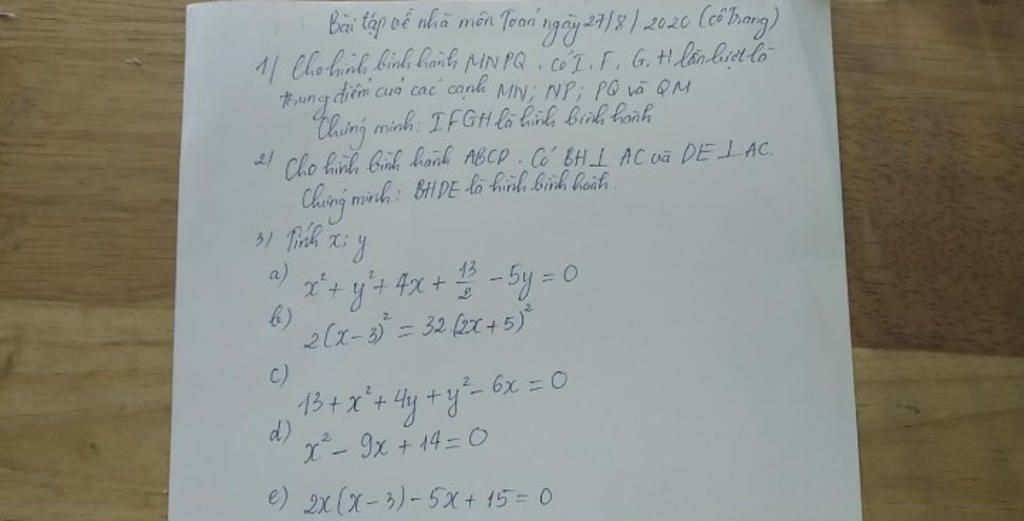 Bài tập về nhà môn Toán ngày 27/8/2020 (cô Trang)
1/ Cho hình bình hành MNPQ. Có I, F, G, H lần lượt là
trung điểm của các cạnh MN; NP; PQ và QM
Chứng minh: IFGH là hình bình hành
2/ Cho hình bình hành ABCD. Có BH ⊥ AC và DE ⊥ AC.
Chứng minh: BHDE là hình bình hành.
3/ Tính x; y
a) x² + y² + 4x + 13/2 - 5y = 0
b) 2(x-3)² = 32(2x+5)²
c) 13 + x² + 4y + y² - 6x = 0
d) x² - 9x + 14 = 0
e) 2x(x-3) - 5x + 15 = 0